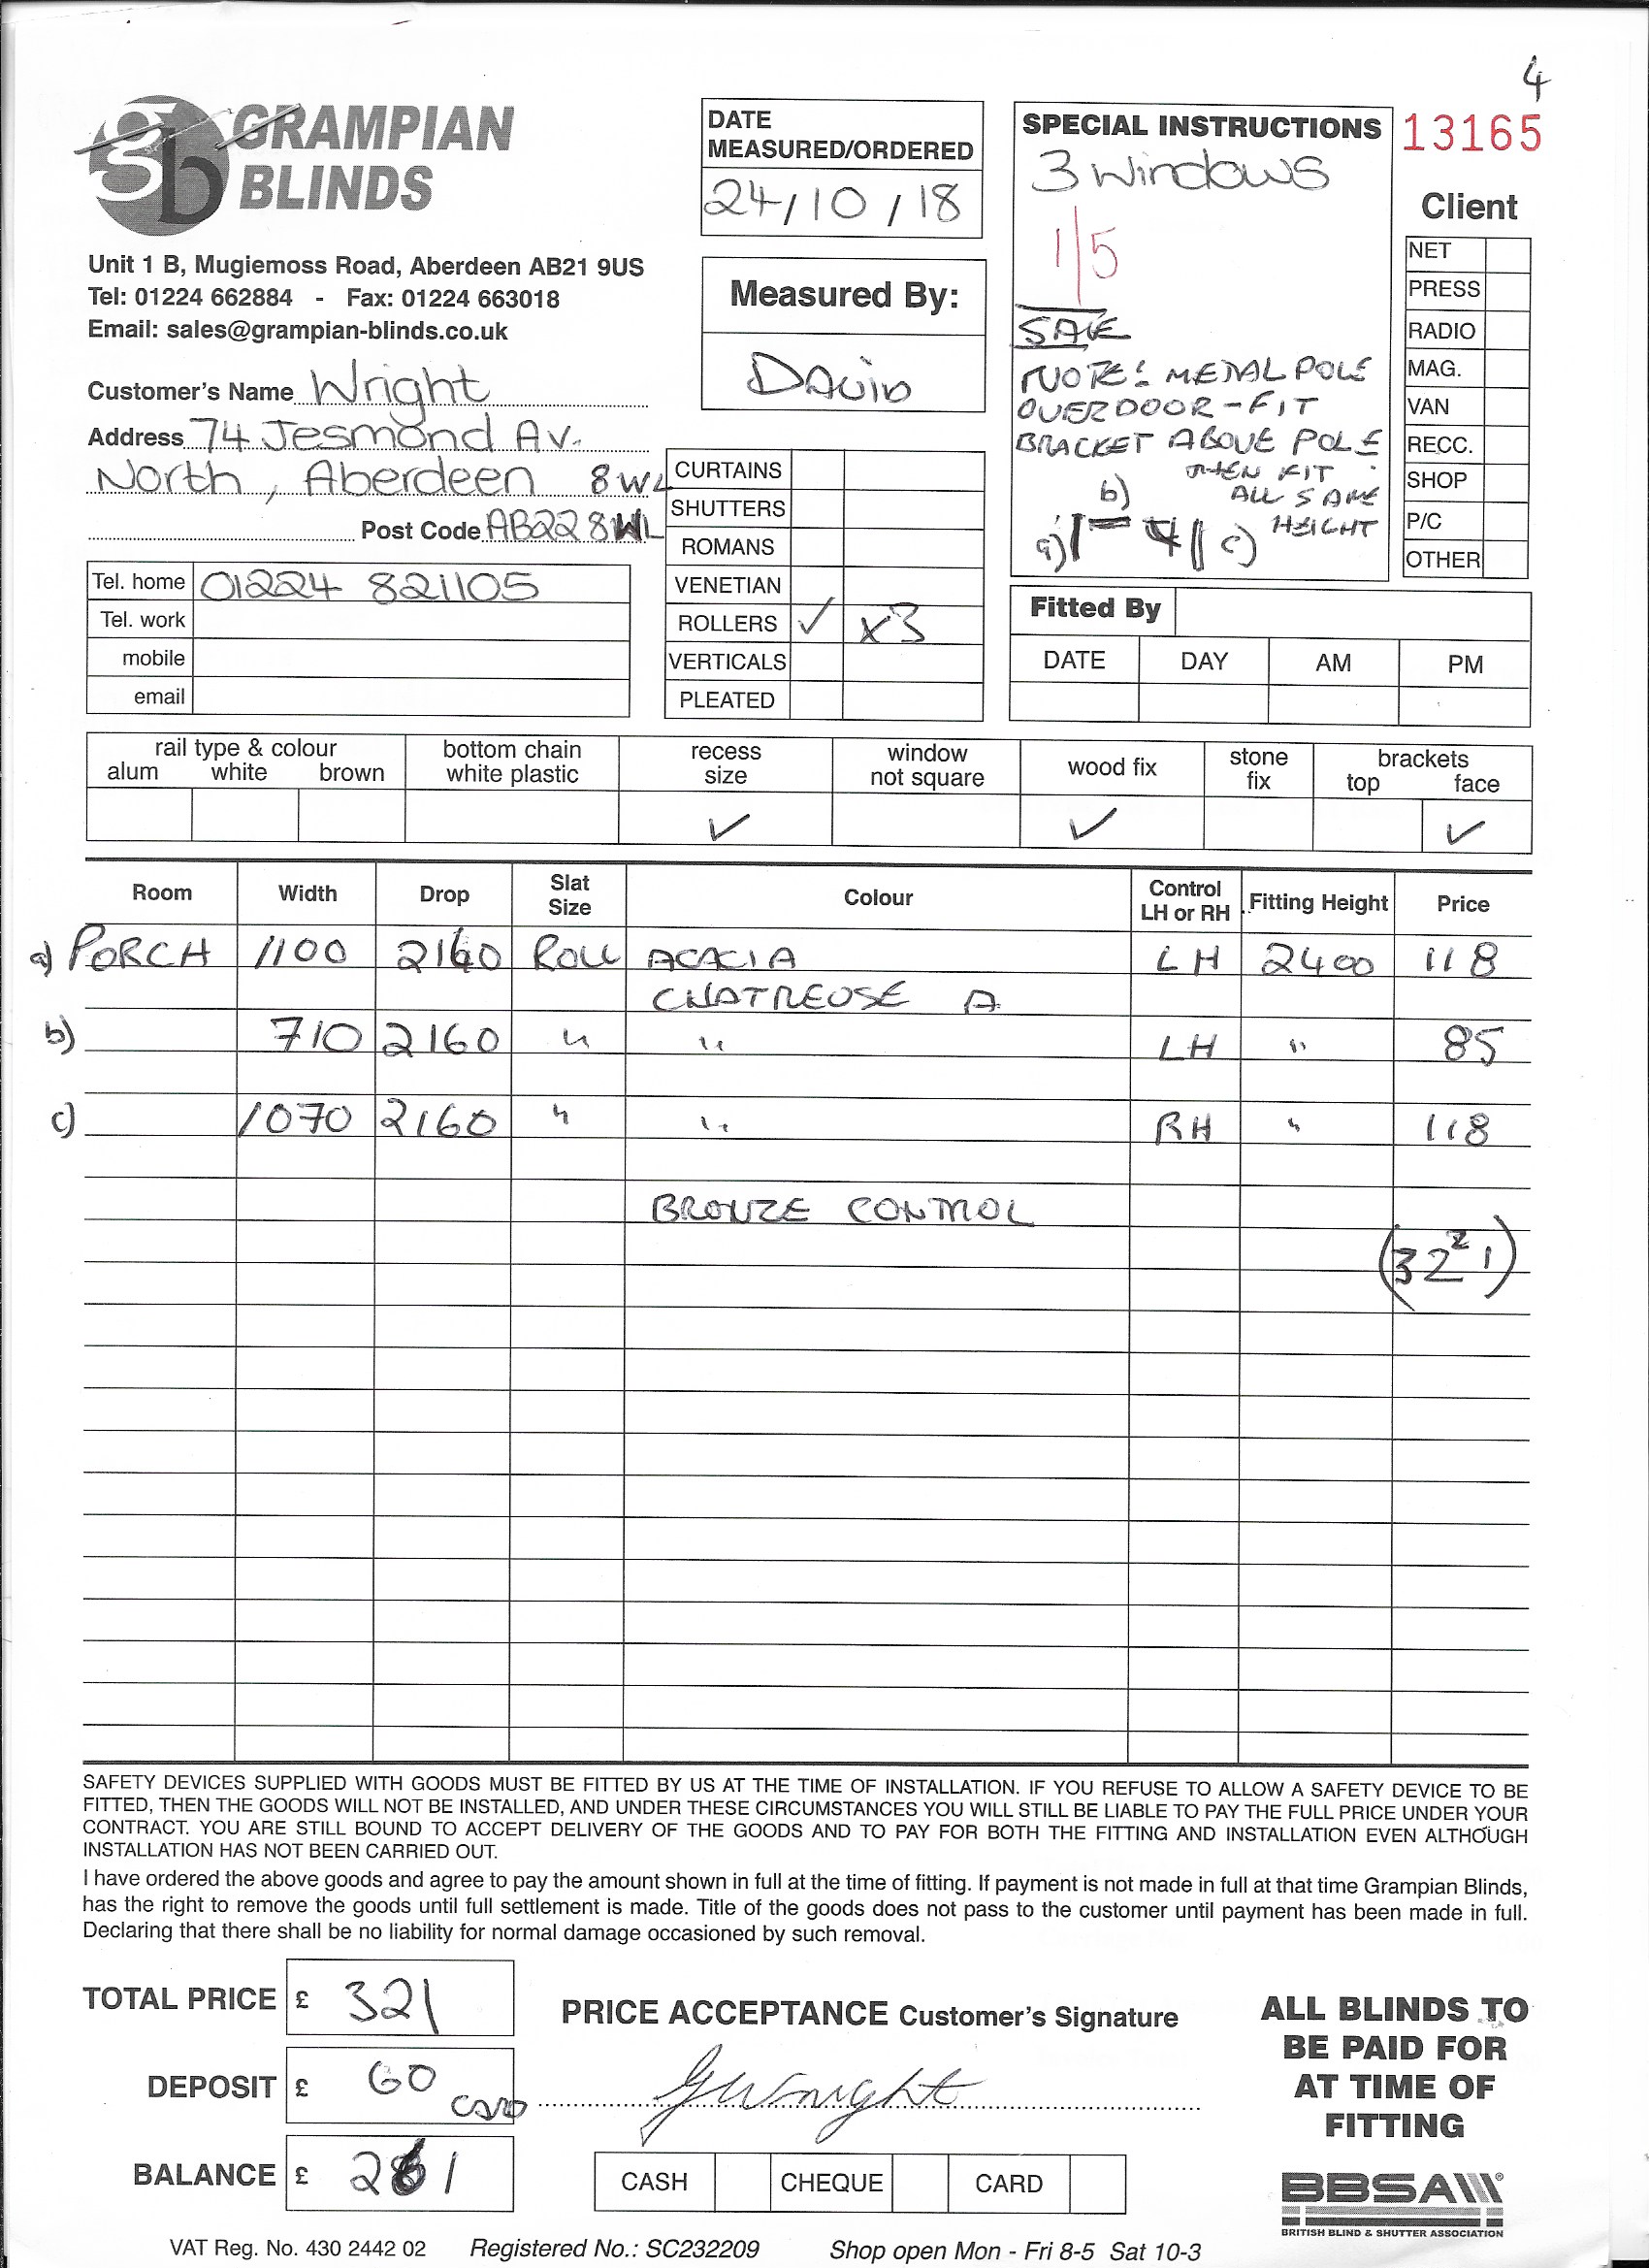 4
GRAMPIAN
BLINDS
gb
Unit 1 B, Mugiemoss Road, Aberdeen AB21 9US
Tel: 01224 662884 - Fax: 01224 663018
Email: sales@grampian-blinds.co.uk
Customer's Name Wright
Address 74 Jesmond Av.
North, Aberdeen 8WL
Post Code AB22 8WL
Tel. home 01224 821105
Tel. work
mobile
email
DATE
MEASURED/ORDERED
24/10/18
Measured By:
David
CURTAINS
SHUTTERS
ROMANS
VENETIAN
ROLLERS ✓ x3
VERTICALS
PLEATED
SPECIAL INSTRUCTIONS
3 Windows
1/5
SAVE
NOTE: METAL POLE
OVER DOOR - FIT
BRACKET ABOVE POLE
THEN FIT
ALL SAME
HEIGHT
a) b) c)
13165
Client
NET
PRESS
RADIO
MAG.
VAN
RECC.
SHOP
P/C
OTHER
Fitted By
DATE DAY AM PM
rail type & colour
alum white brown
bottom chain
white plastic
recess
size
✓
window
not square
wood fix
✓
stone
fix
brackets
top face
✓
Room Width Drop Slat Size Colour Control LH or RH Fitting Height Price
a) PORCH 1100 2160 ROLL ACACIA LH 2400 118
CHATREUSE A
b) 710 2160 " " LH " 85
c) 1070 2160 " " RH " 118
BRONZE CONTROL
(32²1)
SAFETY DEVICES SUPPLIED WITH GOODS MUST BE FITTED BY US AT THE TIME OF INSTALLATION. IF YOU REFUSE TO ALLOW A SAFETY DEVICE TO BE
FITTED, THEN THE GOODS WILL NOT BE INSTALLED, AND UNDER THESE CIRCUMSTANCES YOU WILL STILL BE LIABLE TO PAY THE FULL PRICE UNDER YOUR
CONTRACT. YOU ARE STILL BOUND TO ACCEPT DELIVERY OF THE GOODS AND TO PAY FOR BOTH THE FITTING AND INSTALLATION EVEN ALTHOUGH
INSTALLATION HAS NOT BEEN CARRIED OUT.
I have ordered the above goods and agree to pay the amount shown in full at the time of fitting. If payment is not made in full at that time Grampian Blinds,
has the right to remove the goods until full settlement is made. Title of the goods does not pass to the customer until payment has been made in full.
Declaring that there shall be no liability for normal damage occasioned by such removal.
TOTAL PRICE £ 321
DEPOSIT £ 60 CARD
BALANCE £ 261
PRICE ACCEPTANCE Customer's Signature
G Wright
CASH CHEQUE CARD
ALL BLINDS TO
BE PAID FOR
AT TIME OF
FITTING
BBSA
BRITISH BLIND & SHUTTER ASSOCIATION
VAT Reg. No. 430 2442 02 Registered No.: SC232209 Shop open Mon - Fri 8-5 Sat 10-3